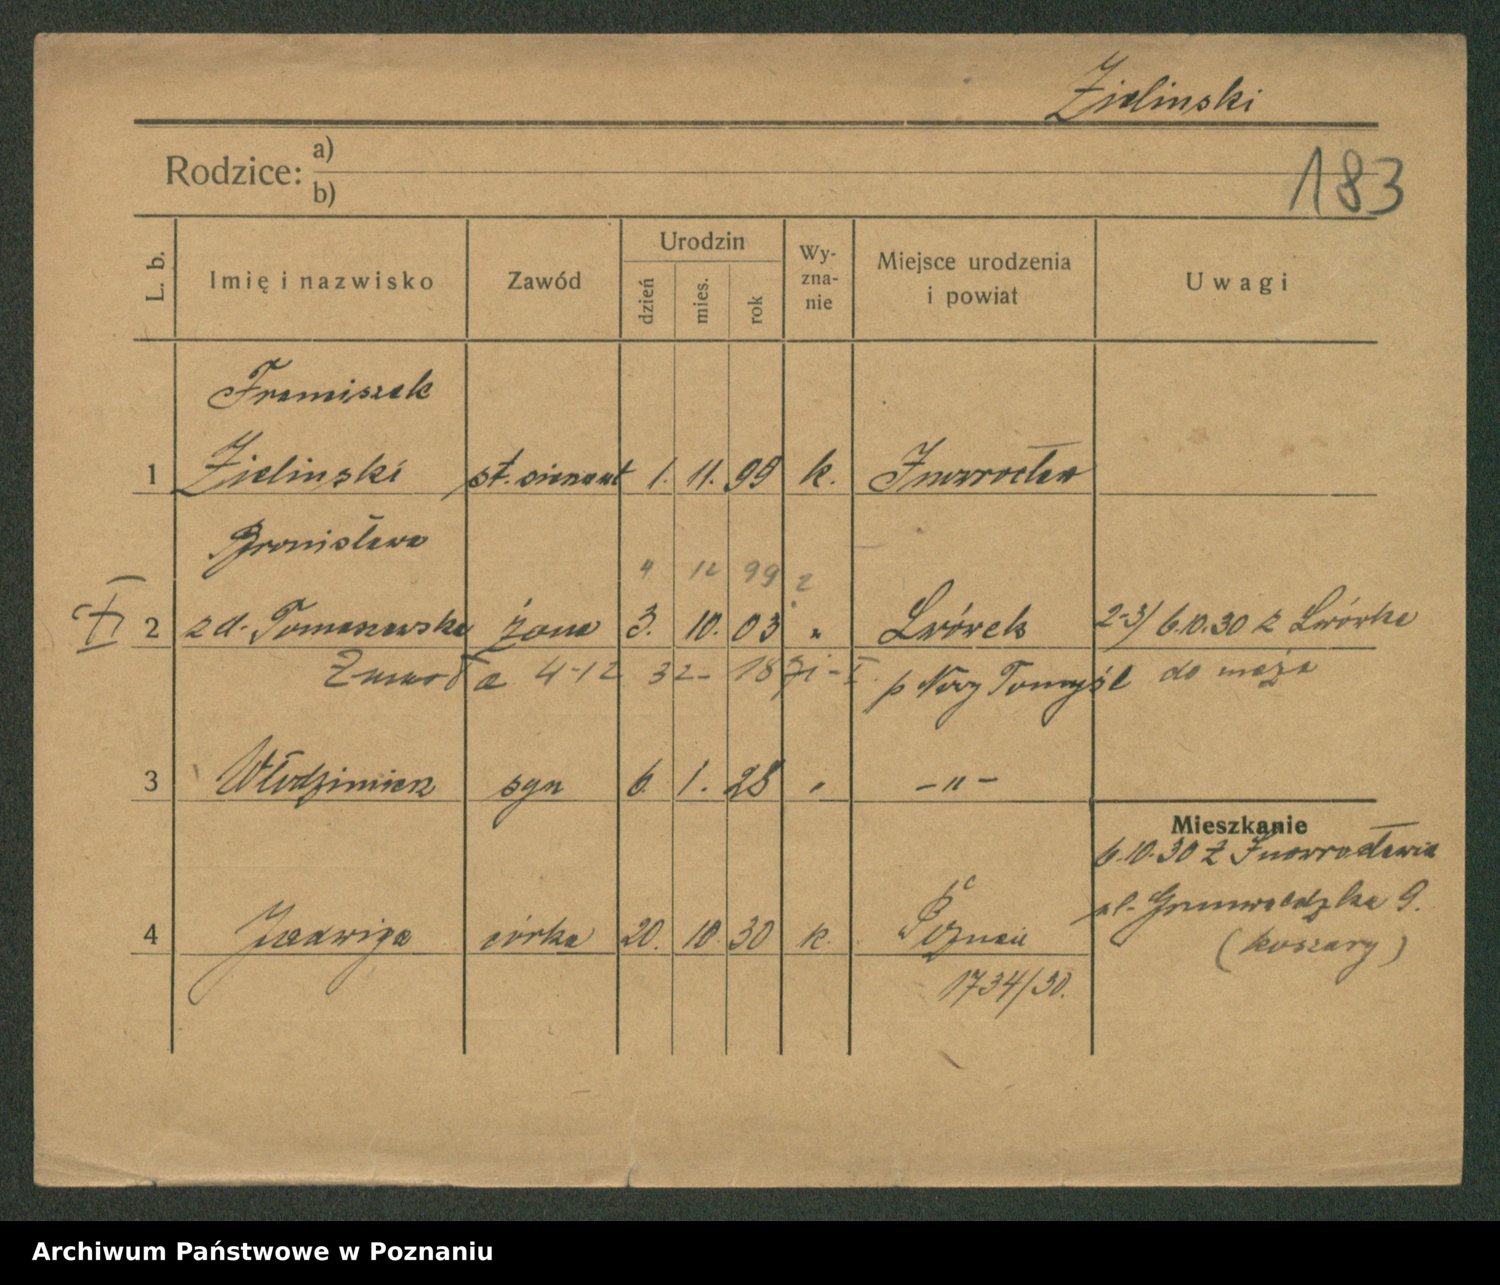 Zielinski
Rodzice: a)
b)
183
L. b.
Imię i nazwisko
Zawód
Urodzin
dzień
mies.
rok
Wy-
zna-
nie
Miejsce urodzenia
i powiat
Uwagi
Franciszek
1 Zielinski st. 1. 11. 99 k. Inowrocław
Bronisława
4 12 99 ?
2 zd. Tomaszewska żona 3. 10. 03 " Lwówek 2-3/ 6.10.30 z Lwówka
Zmarła 4-12 32- p Nowy Tomyśl do męża
3 Włodzimierz syn 6. 1. 28 " -"-
Mieszkanie
6.10.30 z Inowrocławia
ul. Grunwaldzka 9.
(koszary)
4 Jadwiga córka 20. 10. 30 k. Poznań
1734/30.
Archiwum Państwowe w Poznaniu